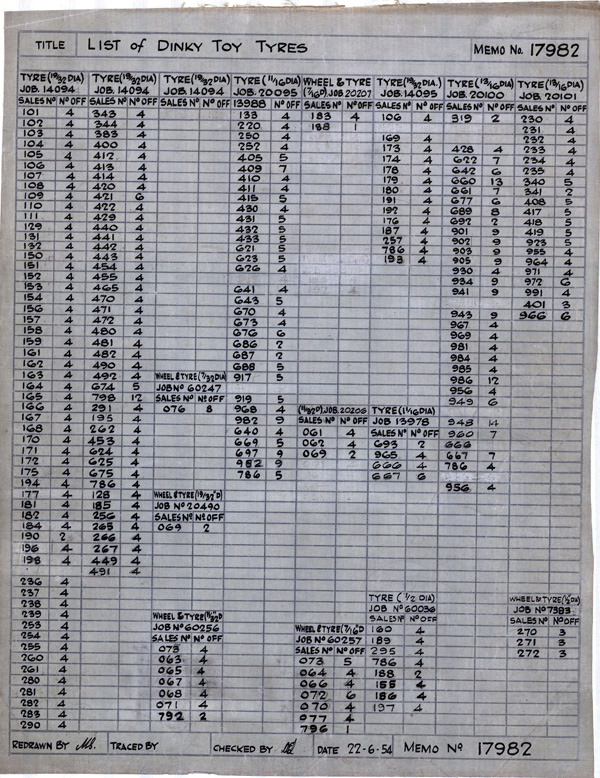 TITLE LIST of DINKY TOY TYRES MEMO No. 17982
TYRE (19/32 DIA)
JOB. 14094
SALES Nº Nº OFF
101 4
102 4
103 4
104 4
105 4
106 4
107 4
108 4
109 4
110 4
111 4
129 4
131 4
132 4
150 4
151 4
152 4
153 4
154 4
156 4
157 4
158 4
159 4
161 4
162 4
163 4
164 4
165 4
166 4
167 4
168 4
170 4
171 4
172 4
175 4
194 4
177 4
181 4
182 4
184 4
190 2
196 4
198 4
236 4
237 4
238 4
239 4
253 4
254 4
255 4
260 4
261 4
280 4
281 4
282 4
283 4
290 4
TYRE (19/32 DIA)
JOB. 14094
SALES Nº Nº OFF
343 4
344 4
383 4
400 4
412 4
413 4
414 4
420 4
421 6
422 4
429 4
440 4
441 4
442 4
443 4
454 4
455 4
465 4
470 4
471 4
472 4
480 4
481 4
482 4
490 4
492 4
674 5
798 12
291 4
195 4
262 4
453 4
624 4
625 4
675 4
786 4
128 4
185 4
256 4
265 4
266 4
267 4
449 4
491 4
TYRE (19/32 DIA)
JOB. 14094
SALES Nº Nº OFF
WHEEL & TYRE (7/32 DIA)
JOB Nº 60247
SALES Nº Nº OFF
076 8
WHEEL & TYRE (19/32"D)
JOB Nº 20490
SALES Nº Nº OFF
069 2
JOB Nº 60256
SALES Nº Nº OFF
073 4
063 4
065 4
067 4
068 4
071 4
792 2
TYRE (11/16 DIA)
JOB. 20095
13988 Nº OFF
133 4
220 4
250 4
252 4
405 5
409 7
410 4
411 4
415 5
430 4
431 5
432 5
433 5
621 5
623 5
626 4
641 4
643 5
670 4
673 4
676 6
686 2
687 2
688 5
917 5
919 5
968 4
982 9
640 4
669 5
697 9
952 9
786 5
WHEEL & TYRE
(7/16 D). JOB. 20207
SALES Nº Nº OFF
183 4
188 1
JOB. 20206
SALES Nº Nº OFF
061 4
062 4
069 2
WHEEL & TYRE (7/16"D
JOB Nº 60257
SALES Nº Nº OFF
073 5
064 4
066 4
072 6
070 4
077 4
796 1
JOB. 14095
SALES Nº Nº OFF
106 4
169 4
173 4
174 4
178 4
179 4
180 4
191 4
192 4
176 4
187 4
257 4
786 4
193 4
TYRE (11/16 DIA)
JOB 13978
SALES Nº Nº OFF
693 2
965 4
666 4
667 6
TYRE (1/2 DIA)
JOB Nº 60036
SALES Nº Nº OFF
160 4
189 4
295 4
786 4
188 2
155 4
186 4
197 4
TYRE (13/16 DIA)
JOB. 20100
SALES Nº Nº OFF
319 2
428 4
622 7
642 6
660 13
661 7
677 6
689 8
692 2
901 9
902 9
903 9
905 9
930 4
934 9
941 9
943 9
967 4
969 4
981 4
984 4
985 4
986 12
956 4
949 6
948 14
960 7
666
667 7
786 4
956 4
TYRE (13/16 DIA)
JOB. 20101
SALES Nº Nº OFF
230 4
231 4
232 4
233 4
234 4
235 4
340 5
341 2
408 5
417 5
418 5
419 5
923 5
955 4
964 4
971 4
972 6
991 4
401 3
966 6
JOB Nº 7383
SALES Nº Nº OFF
270 3
271 3
272 3
REDRAWN BY TRACED BY CHECKED BY DATE 22-6-54 MEMO Nº 17982